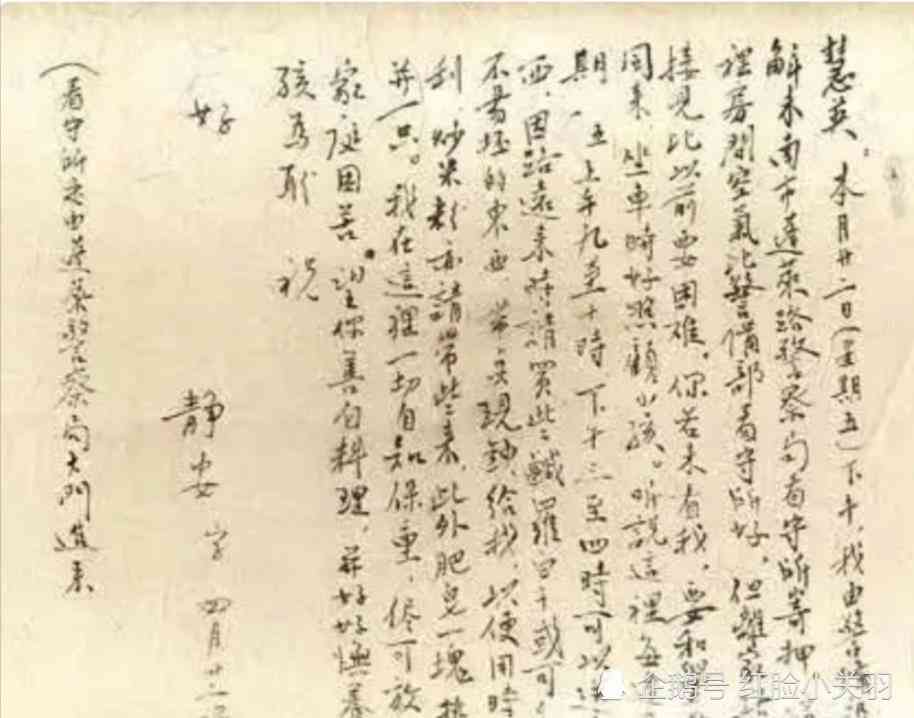 慧英。本月廿二日（星期五）下午，我由警備
解來南市蓬萊路警察局看守所寄押
裡房間空氣比警備部看守所好，但離家
接見比以前要困難。你若來看我，要和
同來，坐車時好照顧小孩。听說這裡每
期一、五上午九至十時下午三至四時可以
西，因路遠來時請買些鹹蘿蔔干或可
不易壞的東西帶 現鈔給我，以便用時
利，炒米粉亦請帶些來，此外肥皂一塊
一只。我在這裡一切自知保重，儘可放
家庭困苦。望你善自料理，并好好撫養
孩為盼 祝
好
靜安 字 四月廿二
（看守所走由蓬萊警察局大門進來
企鹅号 红脸小关羽